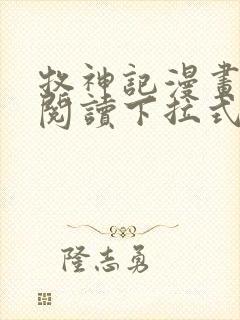 牧神記漫畫
閱讀下拉式
隆志勇